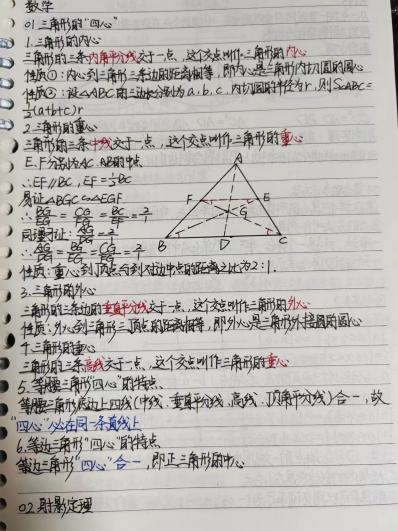 数学
01.三角形的"四心"
1.三角形的内心
三角形的三条内角平分线交于一点，这个点叫作三角形的内心
性质①：内心到三角形三条边的距离相等，即内心是三角形内切圆的圆心
性质②：设△ABC的三边长分别为a、b、c，内切圆的半径为r，则S△ABC=
½(a+b+c)r
2.三角形的重心
三角形的三条中线交于一点，这个点叫作三角形的重心
E、F分别为AC、AB的中点
∴EF∥BC，EF=½BC
易证△BGC∽△EGF
∴BG/EG=CG/FG=BC/EF=2/1
同理可证：AG/DG=2/1
∴AG/DG=BG/EG=CG/FG=2/1
性质：重心到顶点与到对边中点的距离之比为2：1.
A
F
E
G
B
D
C
3.三角形的外心
三角形的三条边的垂直平分线交于一点，这个点叫作三角形的外心
性质：外心到三角形三顶点的距离相等，即外心是三角形外接圆的圆心
4.三角形的垂心
三角形的三条高线交于一点，这个点叫作三角形的垂心
5.等腰三角形"四心"的特点
等腰三角形底边上四线(中线、垂直平分线、高线、顶角平分线)合一，故
"四心"必在同一条直线上
6.等边三角形"四心"的特点
等边三角形"四心"合一，即正三角形的中心
02.射影定理